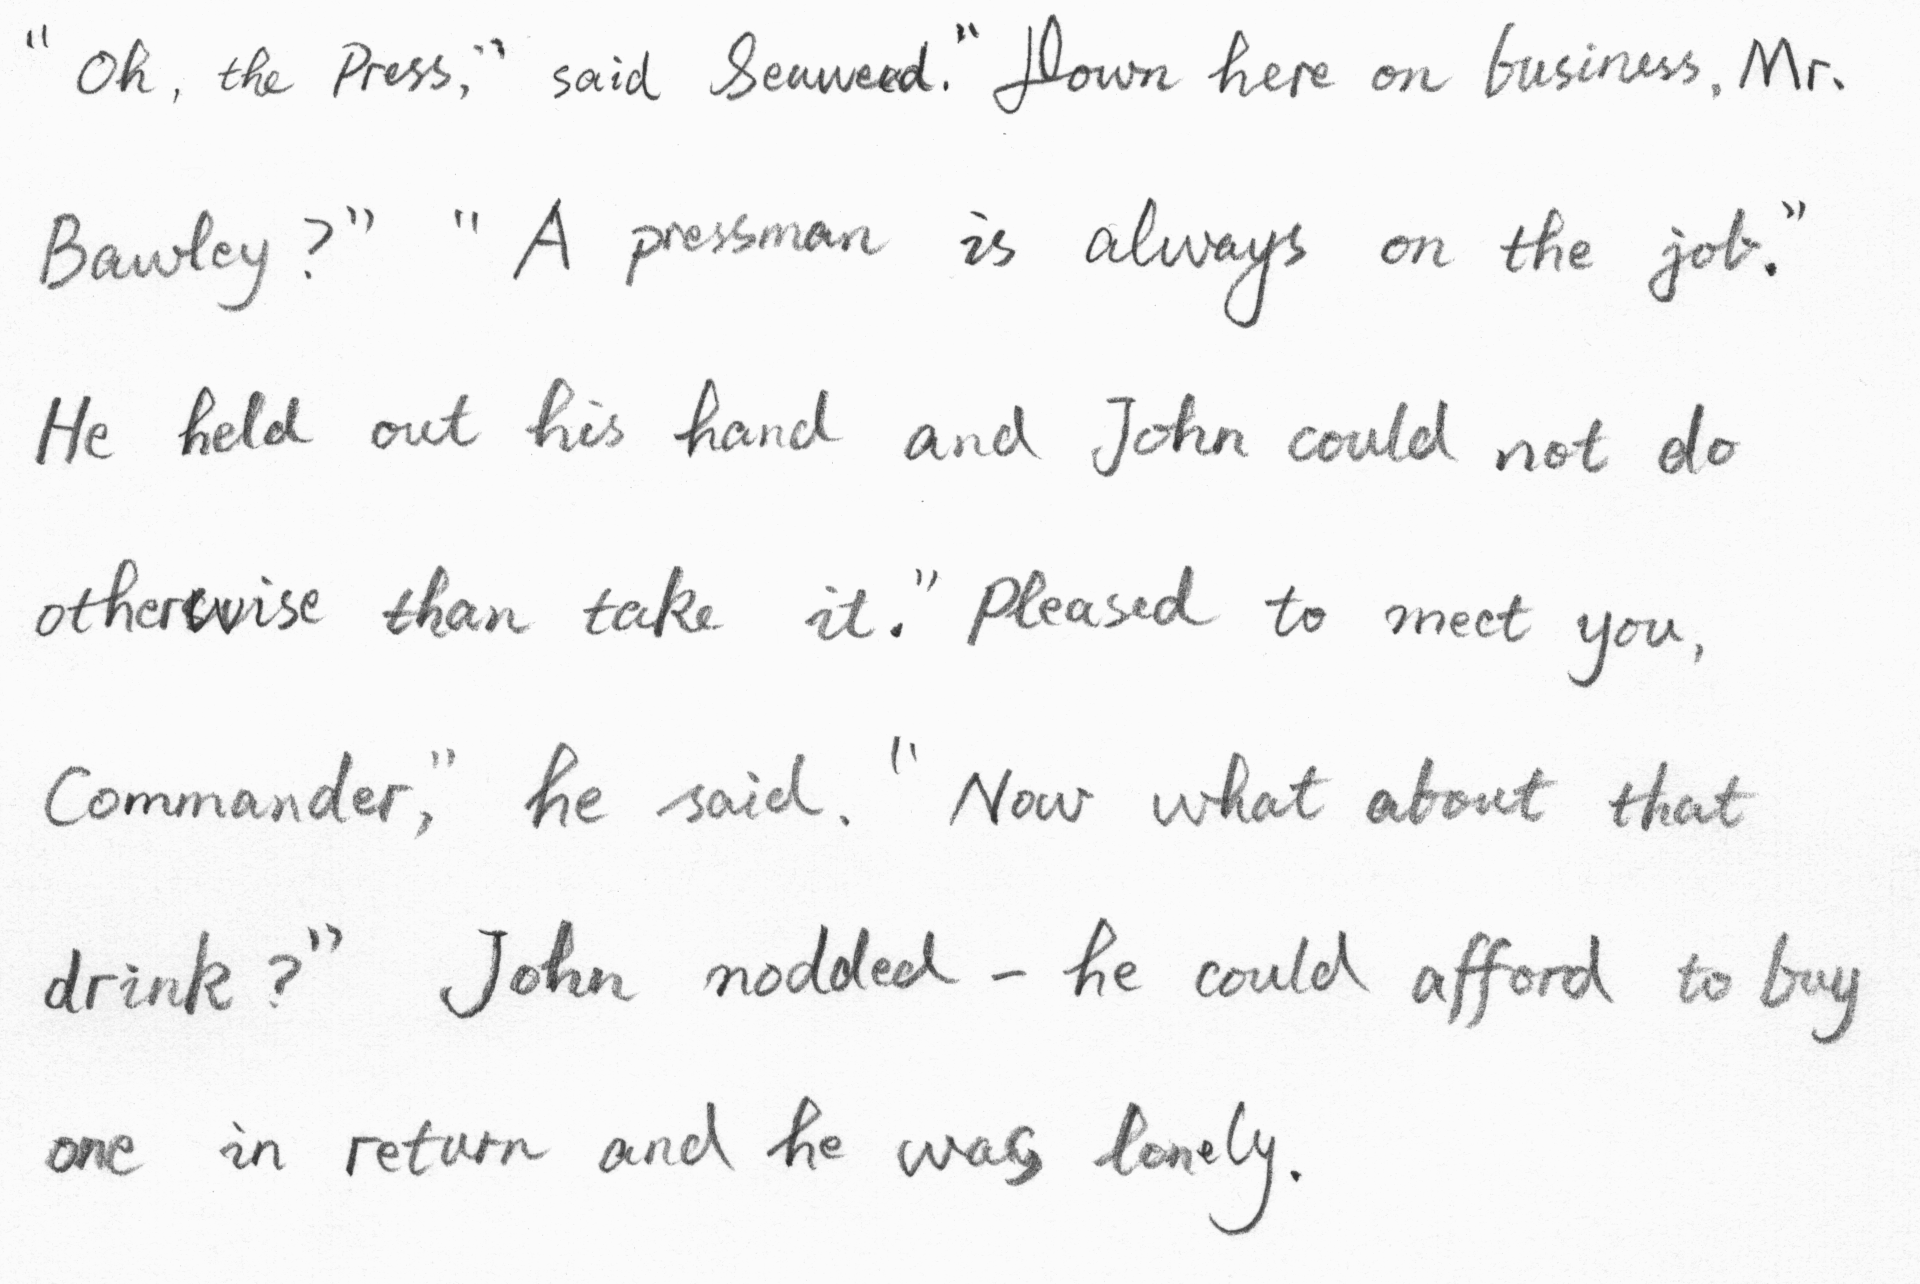 "Oh, the Press," said Seaweed." Down here on business, Mr.
Bawley?" "A pressman is always on the job."
He held out his hand and John could not do
otherwise than take it." Pleased to meet you,
Commander," he said. "Now what about that
drink?" John nodded - he could afford to buy
one in return and he was lonely.